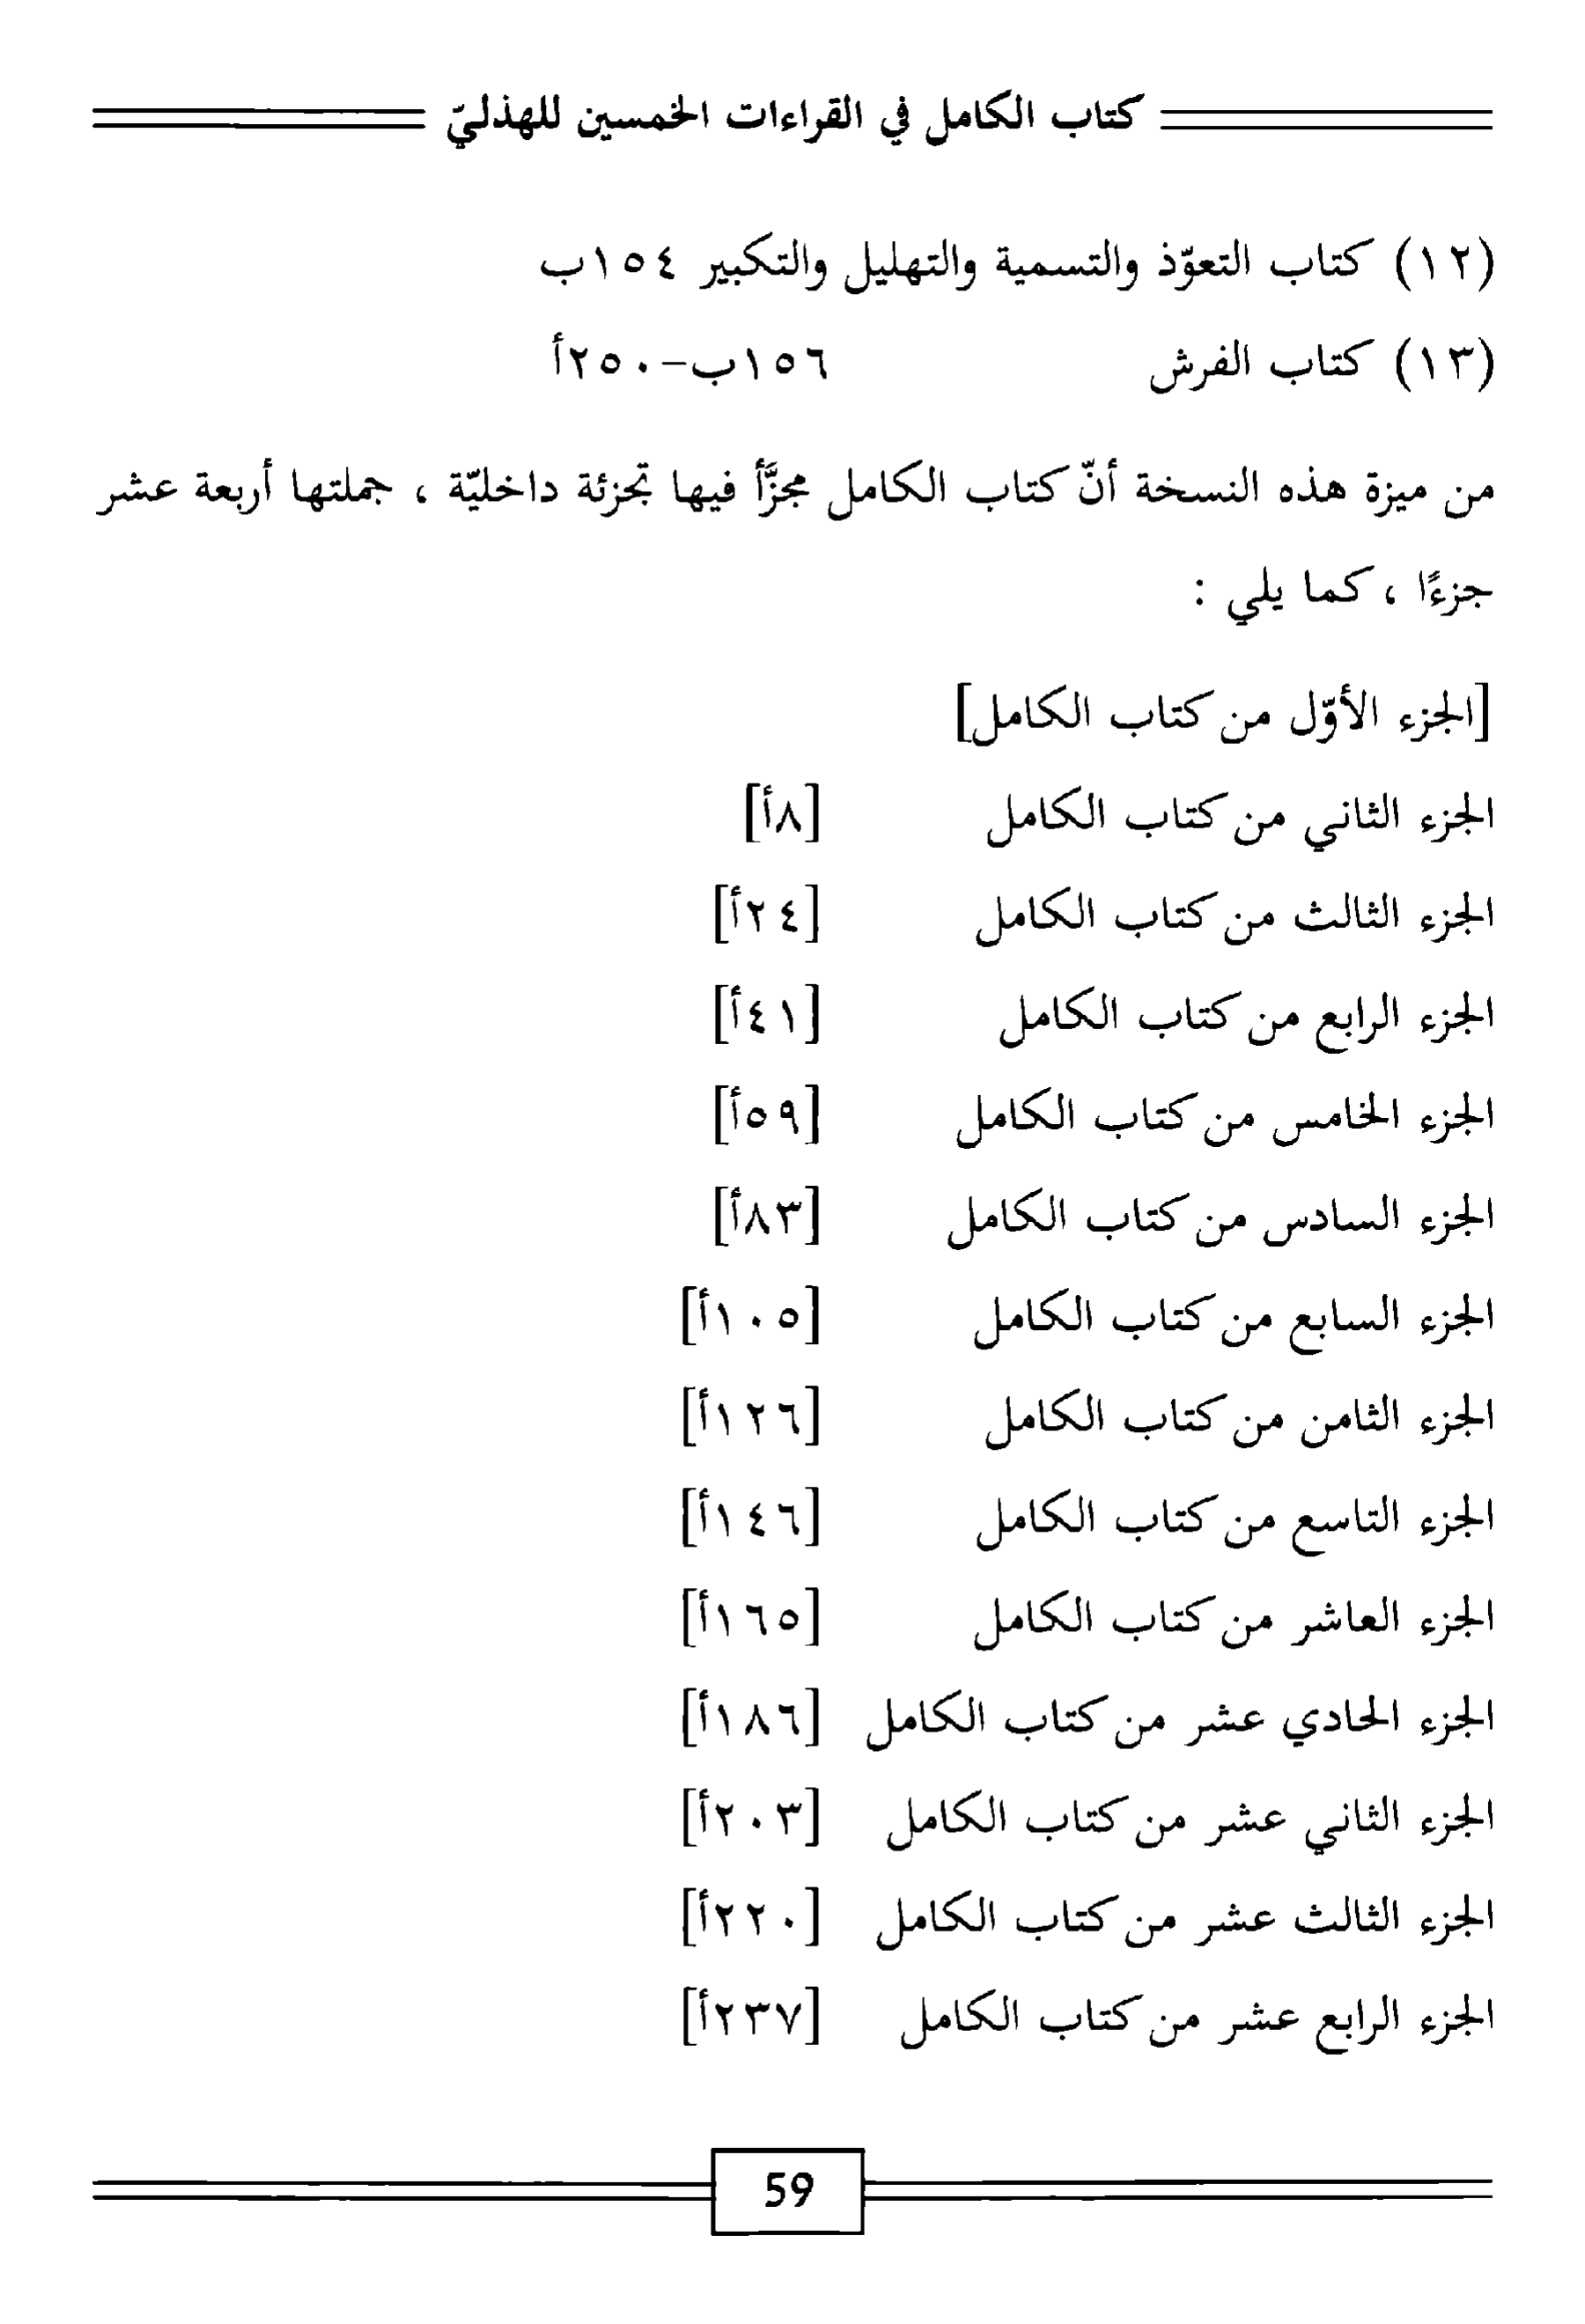 كتاب الكامل في القراءات الخمسين للهذليّ
(١٢) كتاب التعوّذ والتسمية والتهليل والتكبير ١٥٤ب
(١٣) كتاب الفرش ١٥٦ب-٢٥٠أ
من ميزة هذه النسخة أنّ كتاب الكامل مجزَّأ فيها تجزئة داخليّة ، جملتها أربعة عشر
جزءًا ، كما يلي :
[الجزء الأوّل من كتاب الكامل]
الجزء الثاني من كتاب الكامل [٨أ]
الجزء الثالث من كتاب الكامل [٢٤أ]
الجزء الرابع من كتاب الكامل [٤١أ]
الجزء الخامس من كتاب الكامل [٥٩أ]
الجزء السادس من كتاب الكامل [٨٣أ]
الجزء السابع من كتاب الكامل [١٠٥أ]
الجزء الثامن من كتاب الكامل [١٢٦أ]
الجزء التاسع من كتاب الكامل [١٤٦أ]
الجزء العاشر من كتاب الكامل [١٦٥أ]
الجزء الحادي عشر من كتاب الكامل [١٨٦أ]
الجزء الثاني عشر من كتاب الكامل [٢٠٣أ]
الجزء الثالث عشر من كتاب الكامل [٢٢٠أ]
الجزء الرابع عشر من كتاب الكامل [٢٣٧أ]
59